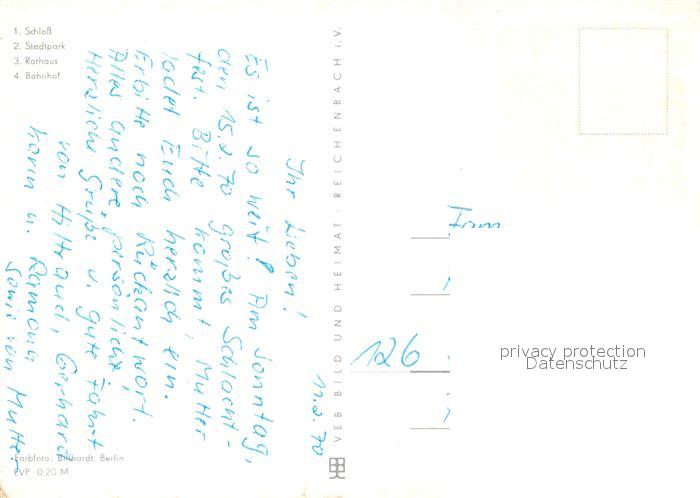 1. Schloß
2. Stadtpark
3. Rathaus
4. Bahnhof
11.2.70
Ihr Lieben!
Es ist so weit! Am Sonntag,
dem 15.2.70 großes Schlacht-
fest. Bitte kommt, Mutter
ladet Euch herzlich ein.
Erbitte noch Rückantwort.
Alles andere persönlich.
Herzliche Grüße u. gute Fahrt
von Hiltraud, Gerhard
Karin u. Ramona
sowie von Mutter
Farbfoto: Billhardt, Berlin
EVP 0,20 M
VEB BILD UND HEIMAT · REICHENBACH i.V.
Fam
126
privacy protection
Datenschutz